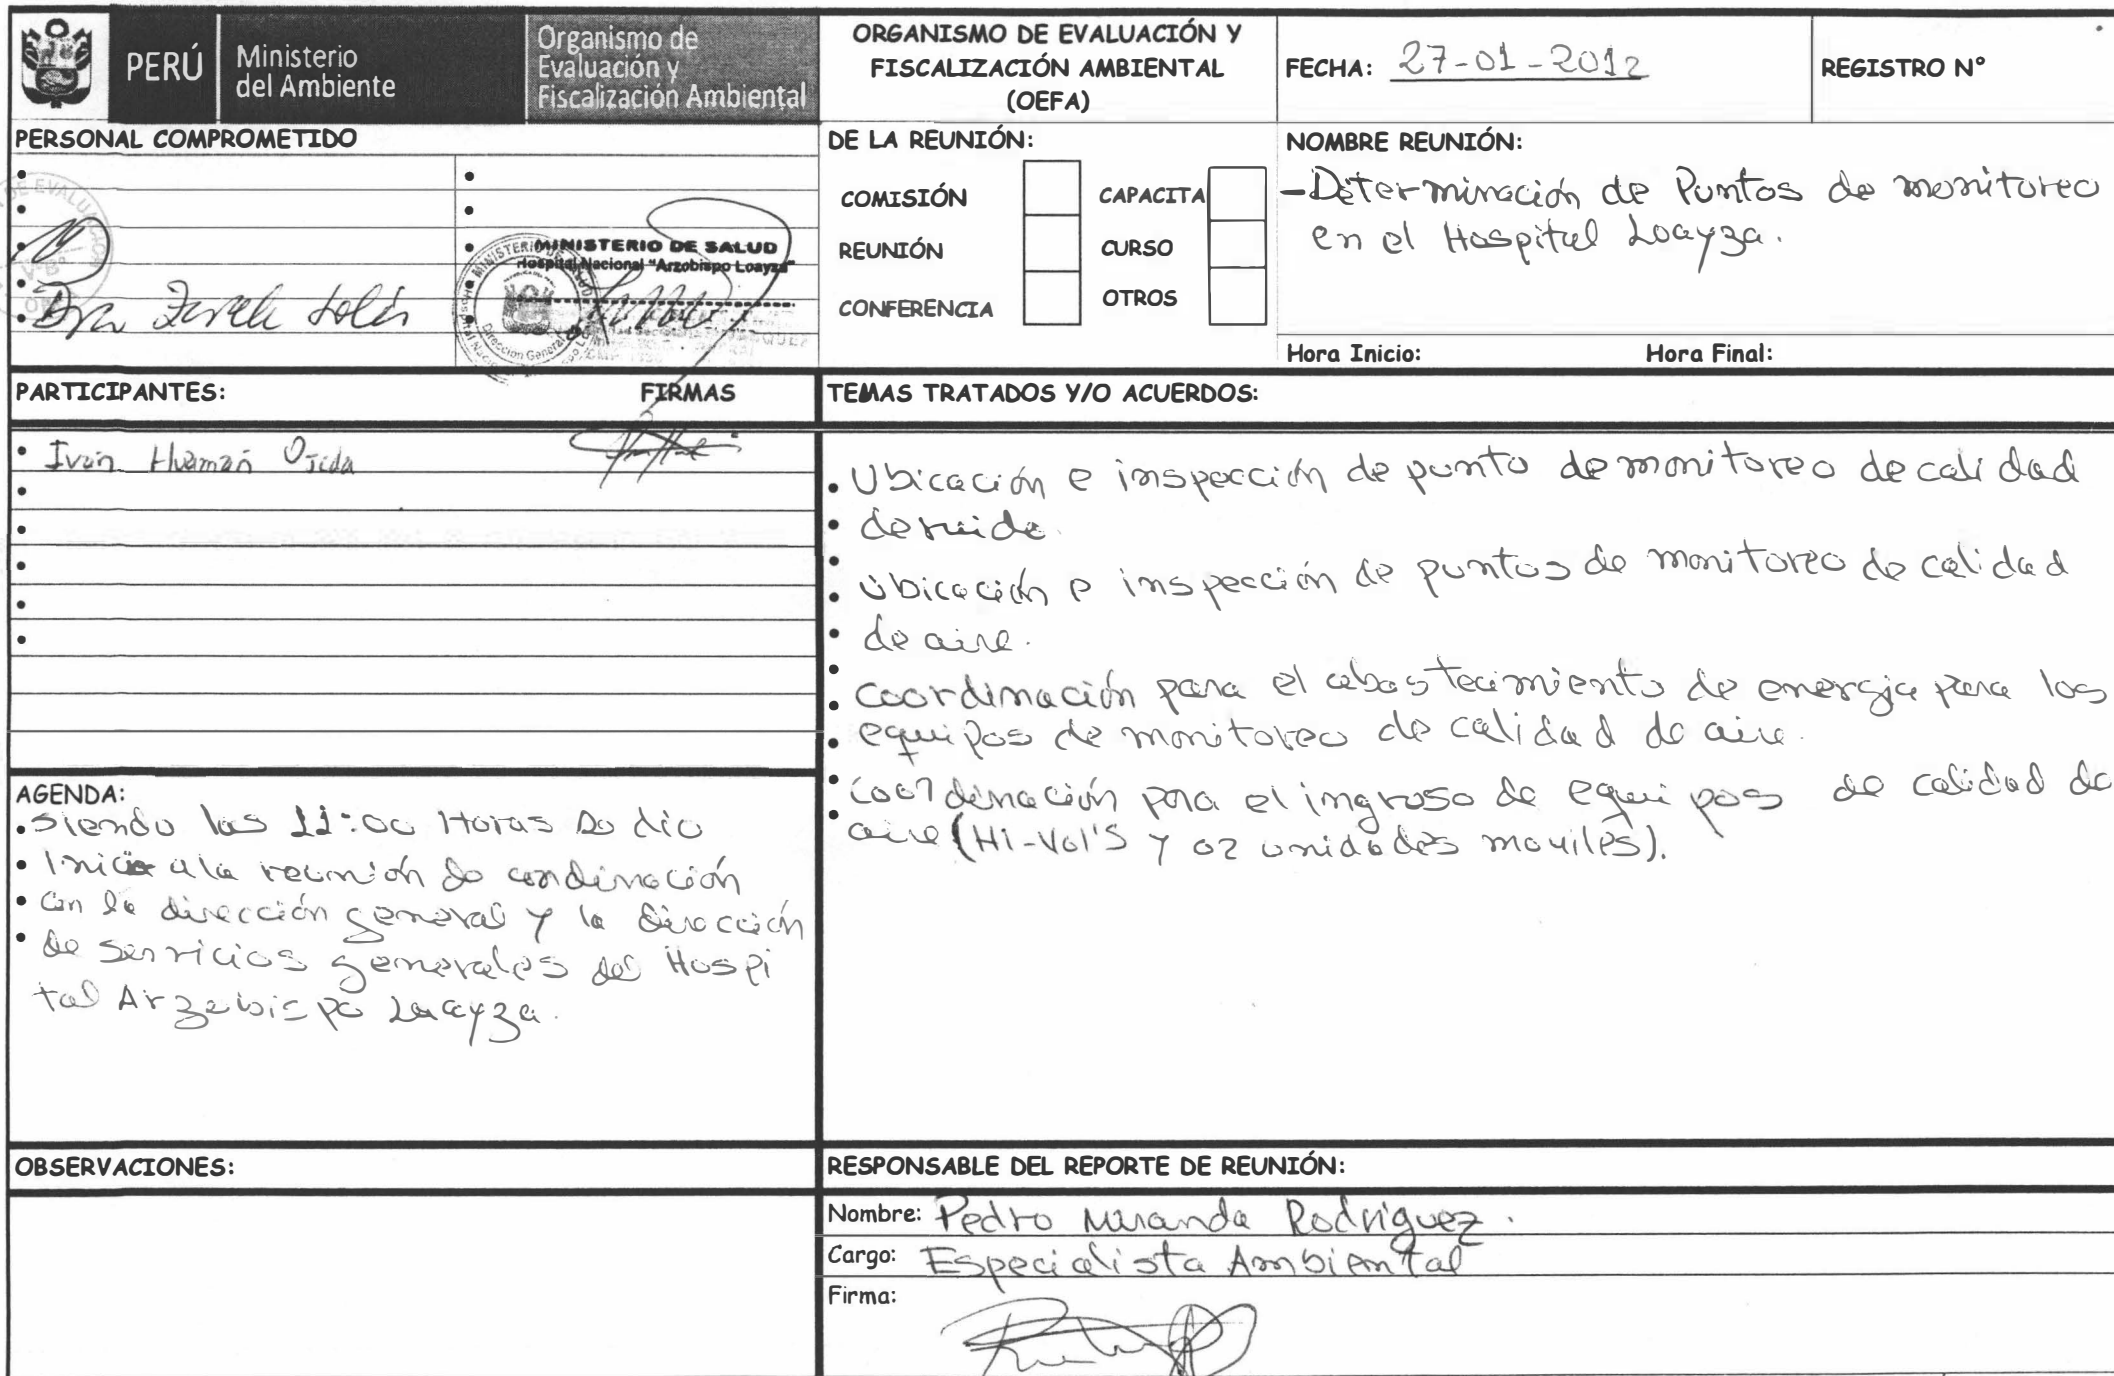 PERÚ
Ministerio
del Ambiente
Organismo de
Evaluación y
Fiscalización Ambiental
ORGANISMO DE EVALUACIÓN Y
FISCALIZACIÓN AMBIENTAL
(OEFA)
FECHA: 27-01-2012
REGISTRO N°
PERSONAL COMPROMETIDO
MINISTERIO DE SALUD
Hospital Nacional "Arzobispo Loayza"
Dirección General
V°B°
Dra
DE LA REUNIÓN:
COMISIÓN
CAPACITA
REUNIÓN
CURSO
CONFERENCIA
OTROS
NOMBRE REUNIÓN:
-Determinación de Puntos de monitoreo
en el Hospital Loayza.
Hora Inicio: Hora Final:
PARTICIPANTES: FIRMAS
• Ivan Huamán Ojeda
TEMAS TRATADOS Y/O ACUERDOS:
• Ubicación e inspección de punto de monitoreo de calidad
• de ruido.
• Ubicación e inspección de puntos de monitoreo de calidad
• de aire.
• Coordinación para el abastecimiento de energia para los
• equipos de monitoreo de calidad de aire.
• Coordinación para el ingreso de equipos de calidad de
• aire (Hi-Vol's y 02 unidades moviles).
AGENDA:
• Siendo las 11:00 Horas se dio
• Inicio a la reunión de coordinación
• con la dirección general y la dirección
• de servicios generales del Hospi
tal Arzobispo Loayza.
OBSERVACIONES:
RESPONSABLE DEL REPORTE DE REUNIÓN:
Nombre: Pedro Miranda Rodriguez.
Cargo: Especialista Ambiental
Firma: